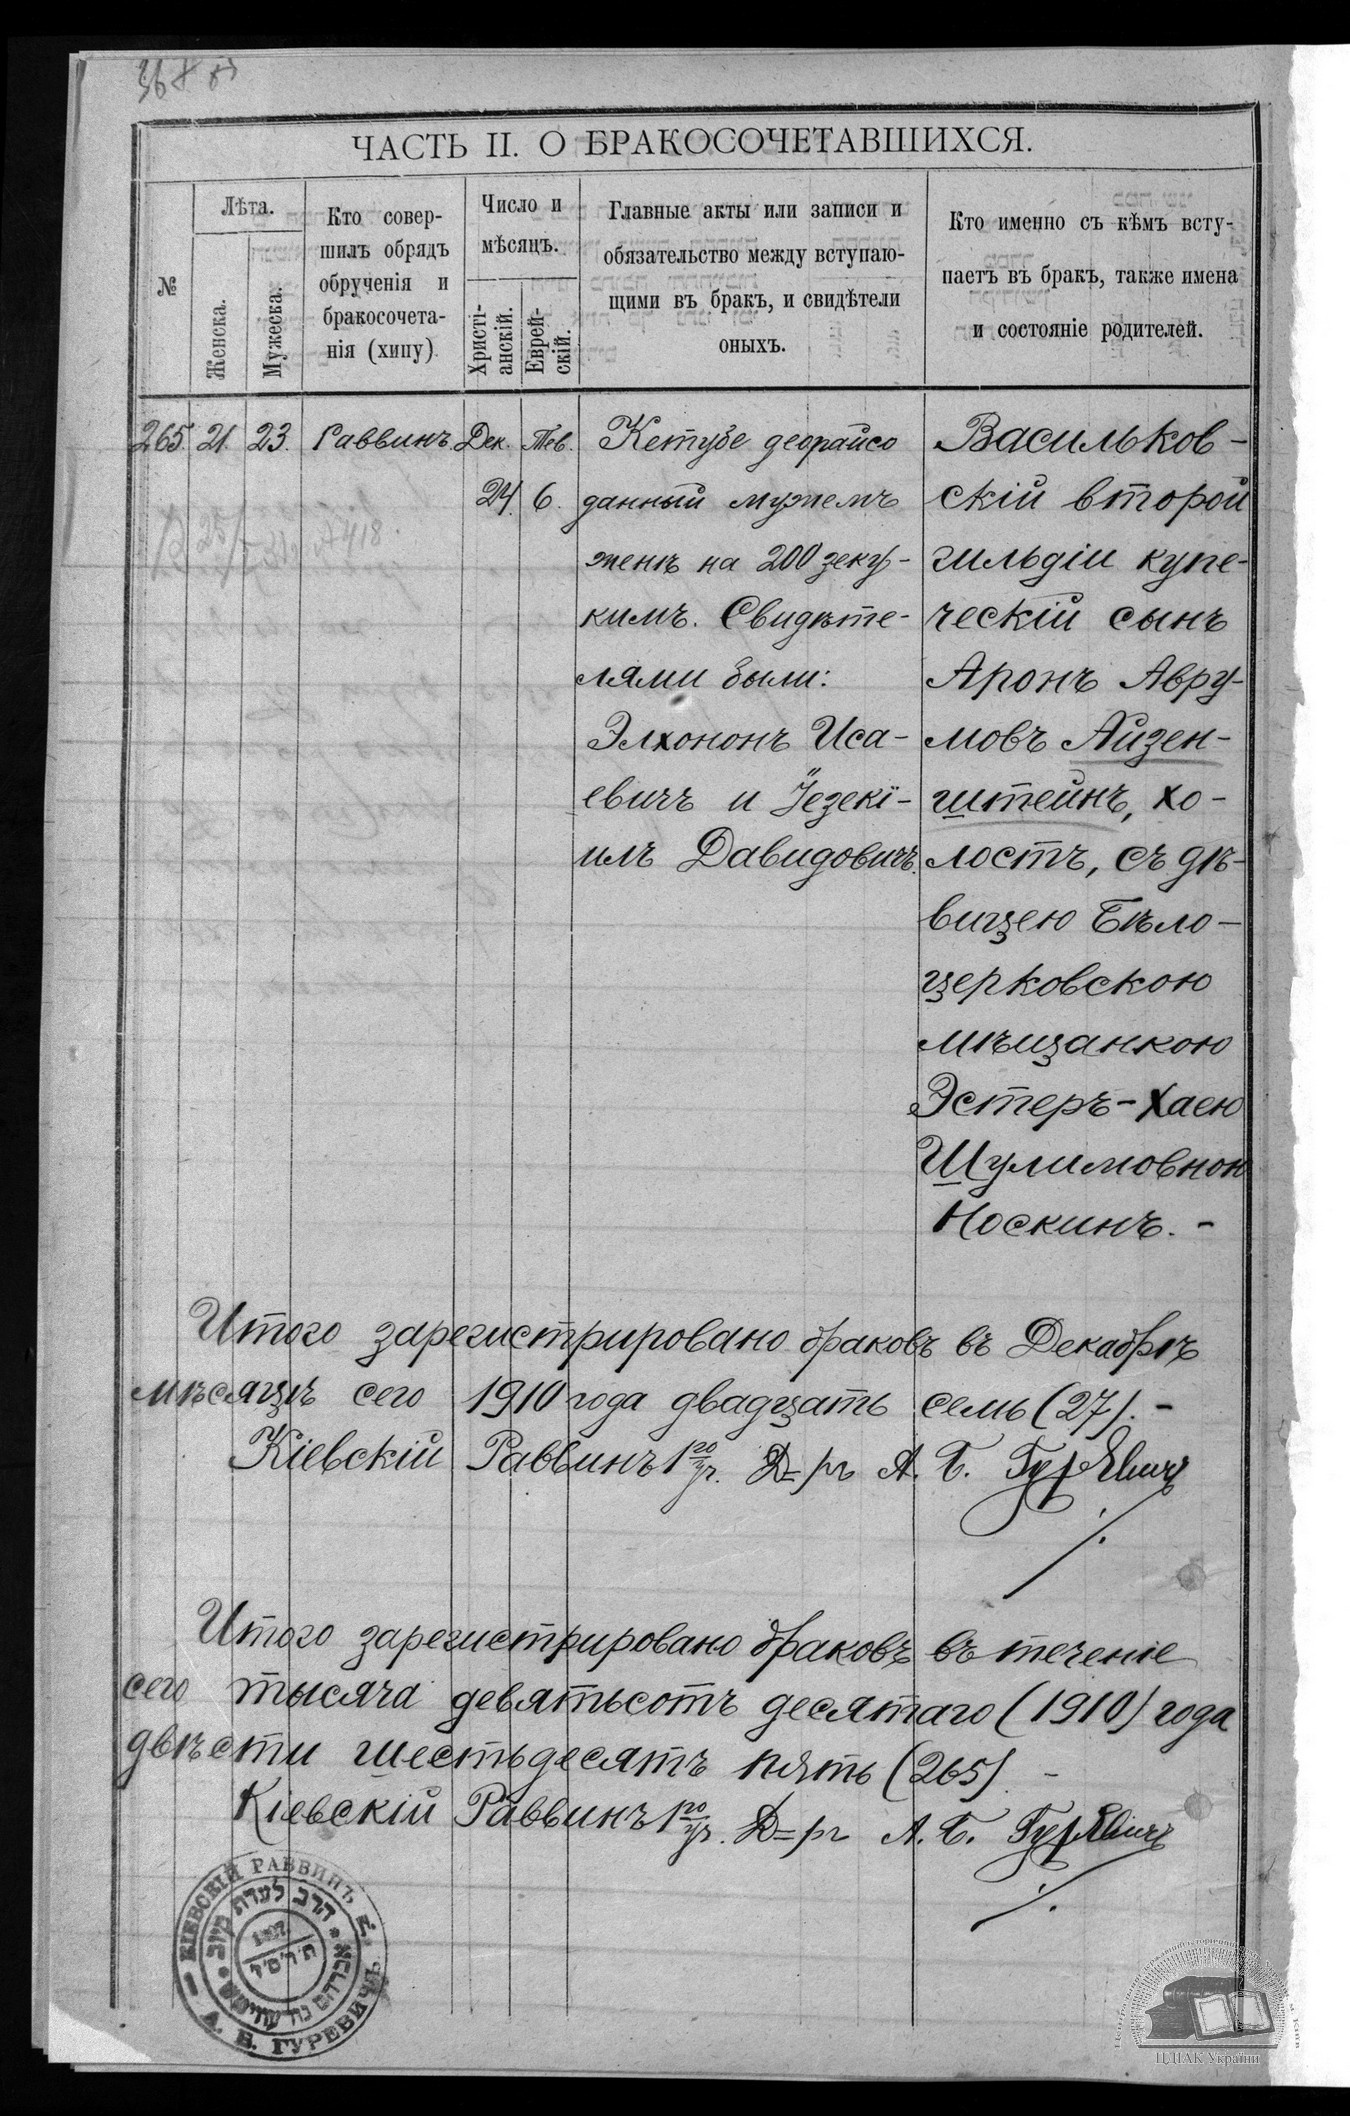 ЧАСТЬ II. О БРАКОСОЧЕТАВШИХСЯ.
№
Лѣта.
Женска.
Мужеска.
Кто совер-
шилъ обрядъ
обрученія и
бракосочета-
нія (хипу)
Число и
мѣсяцъ.
Христі-
анскій.
Еврей-
скій.
Главные акты или записи и
обязательство между вступаю-
щими въ бракъ, и свидѣтели
оныхъ.
Кто именно съ кѣмъ всту-
паетъ въ бракъ, также имена
и состояніе родителей.
265. 21. 23. Раввинъ. Дек. Тев.
24. 6.
Кетубе деорайсо
данный мужемъ
женѣ на 200 зеку-
кимъ. Свидѣте-
лями были:
Элхононъ Иса-
евичъ и Іезекі-
илъ Давидовичъ.
Васильков-
скій второй
гильдіи купе-
ческій сынъ
Аронъ Авру-
мовъ Айзен-
штейнъ, хо-
лостъ, съ дѣ-
вицею Бѣло-
церковскою
мѣщанкою
Эстеръ-Хаею
Шулимовною
Носкинъ. -
Итого зарегистрировано браковъ въ Декабрѣ
мѣсяцѣ сего 1910 года двадцать семь (27). -
Кіевскій Раввинъ 1го уч. Д=ръ А. Б. Гуревичъ
Итого зарегистрировано браковъ въ теченіе
сего тысяча девятьсотъ десятаго (1910) года
двѣсти шестьдесятъ пять (265). -
Кіевскій Раввинъ 1го уч. Д=ръ А. Б. Гуревичъ
КІЕВСКІЙ РАВВИНЪ
А. Б. ГУРЕВИЧЪ
הרב לעדת קיוב
ЦДІАК України